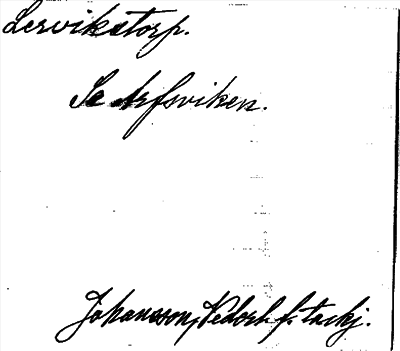 Lervikstorp.
Se Arfsviken.
Johansson, Nedoch f. tackj.